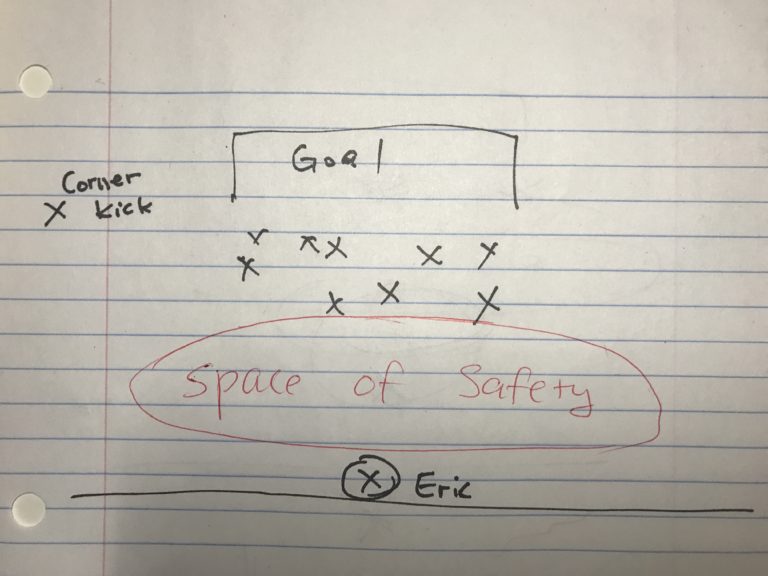 Goal
Corner
X Kick
X X X X X
X
X X X
Space of Safety
X Eric